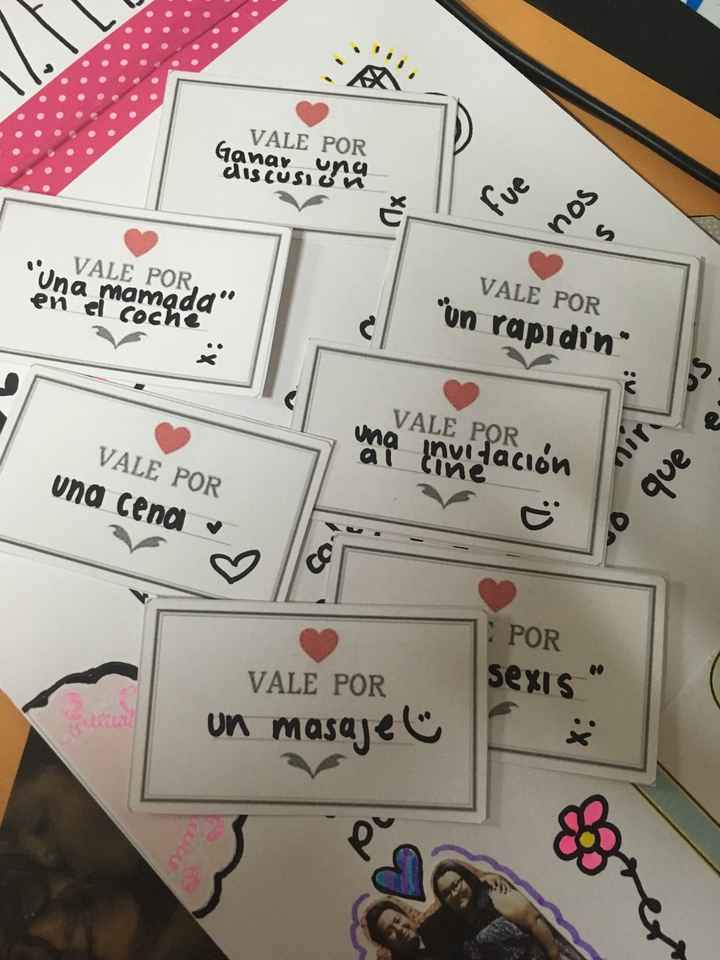 VALE POR
Ganar una
discusión
fue nos
VALE POR
"una mamada"
en el coche
VALE POR
"un rapidín"
VALE POR
una invitación
al cine
que
VALE POR
una cena
POR
sexis"
VALE POR
un masaje